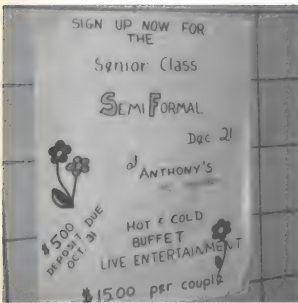 SIGN UP NOW FOR
THE
Senior Class
SEMI FORMAL
Dec 21
at ANTHONY'S
HOT & COLD
BUFFET
LIVE ENTERTAINMENT
$5.00
DEPOSIT DUE
OCT. 31
$15.00 per couple